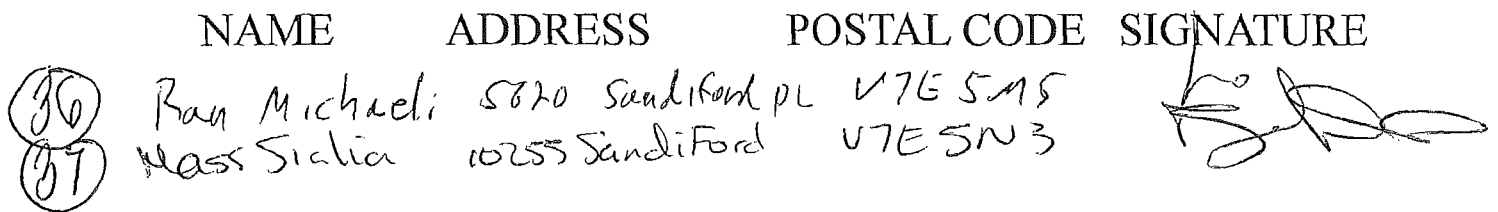 NAME ADDRESS POSTAL CODE SIGNATURE
36 Ran Michaeli 5620 Sandiford PL V7E 5M5
37 Mass Sialia 10255 Sandiford V7E 5N3